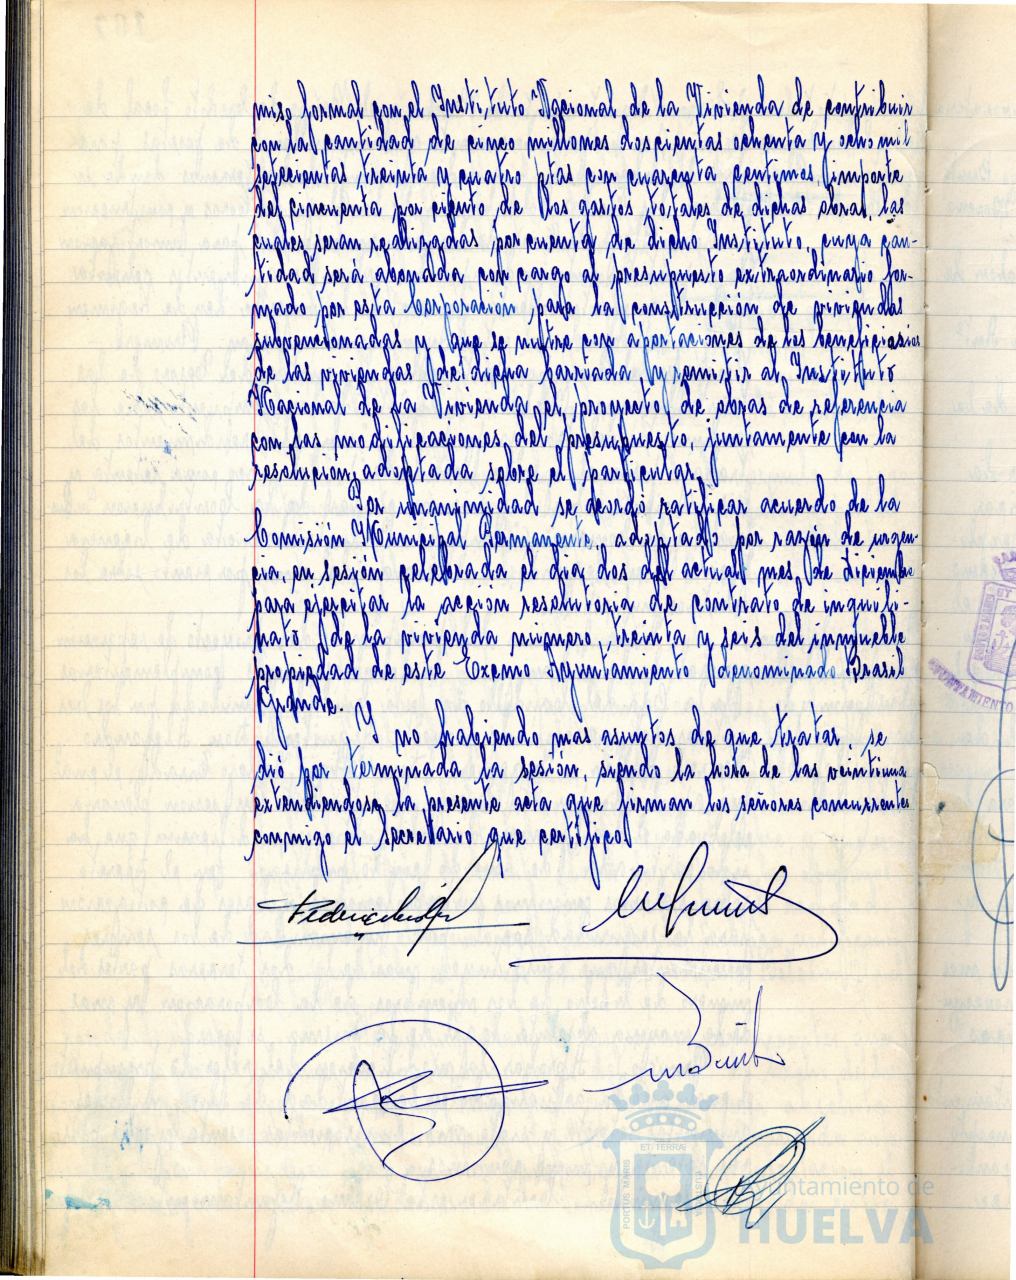 miso formal con el Instituto Nacional de la Vivienda de contribuir
con la cantidad de cinco millones doscientas ochenta y ocho mil
setecientas treinta y cuatro ptas con cuarenta centimos, importe
del cincuenta por ciento de los gastos totales de dichas obras, las
cuales seran realizadas por cuenta de dicho Instituto, cuya can-
tidad será abonada con cargo al presupuesto extraordinario for-
mado por esta Corporación para la construcción de viviendas
subvencionadas y que se nutre con aportaciones de los beneficiarios
de las viviendas de dicha barriada, y remitir al Instituto
Nacional de la Vivienda el proyecto de obras de referencia
con las modificaciones del presupuesto, juntamente con la
resolucion adoptada sobre el particular.
Por unanimidad se acordó ratificar acuerdo de la
Comisión Municipal Permanente, adoptado por razón de urgen-
cia, en sesión celebrada el dia dos del actual mes de diciembre
para ejercitar la acción resolutoria de contrato de inquili-
nato de la vivienda número treinta y seis del inmueble
propiedad de este Excmo Ayuntamiento denominado Brasil
Grande.
Y no habiendo mas asuntos de que tratar, se
dió por terminada la sesión, siendo la hora de las veintiuna
extendiendose la presente acta que firman los señores concurrentes
conmigo el Secretario que certifico
ET TERRAE
PORTUS MARIS
CUSTODIA
Ayuntamiento de
HUELVA
AYUNTAMIENTO